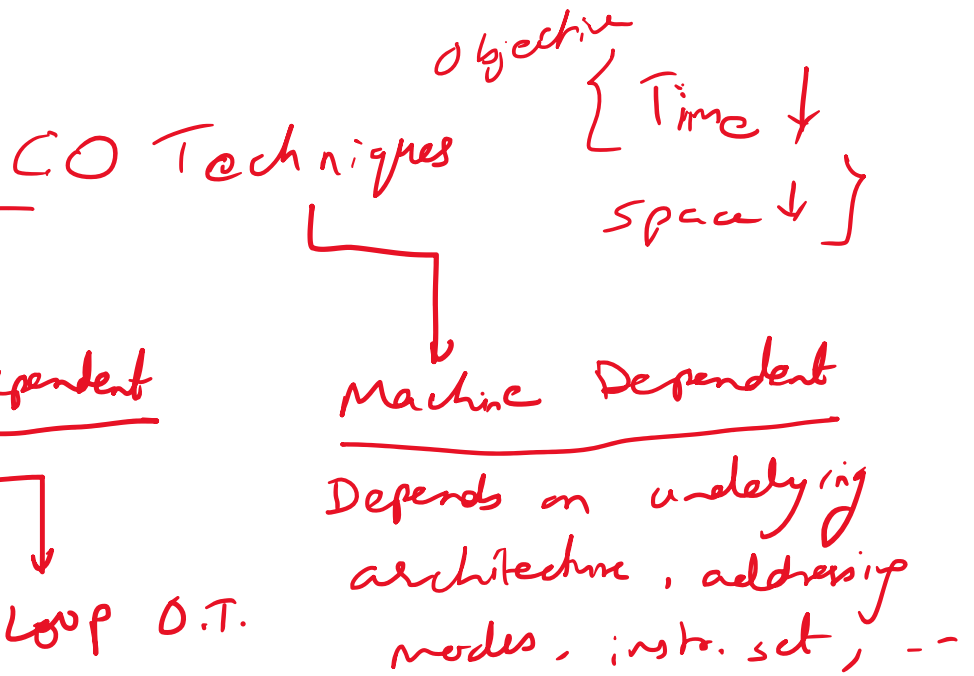 Objective
Time ↓
CO Techniques
space ↓
pendent
Machine Dependent
Depends on underlying
architecture, addressing
Loop O.T.
modes, instr. set, --